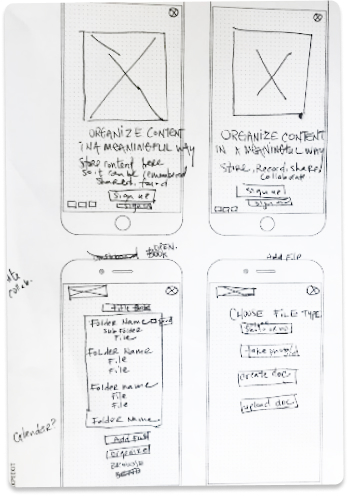 ORGANIZE CONTENT
IN A MEANINGFUL WAY
Store content here
so it can be remembered
shared
Sign up
ORGANIZE CONTENT
IN A MEANINGFUL WAY
Store, Record, share
Collaborate
sign up
sign up
OPEN
BOOK
Folder Name
Subfolder
File
FOLDER Name
File
File
Folder name
File
File
Folder Name
Add File
Calender?
CHOOSE FILE TYPE
create doc
upload doc